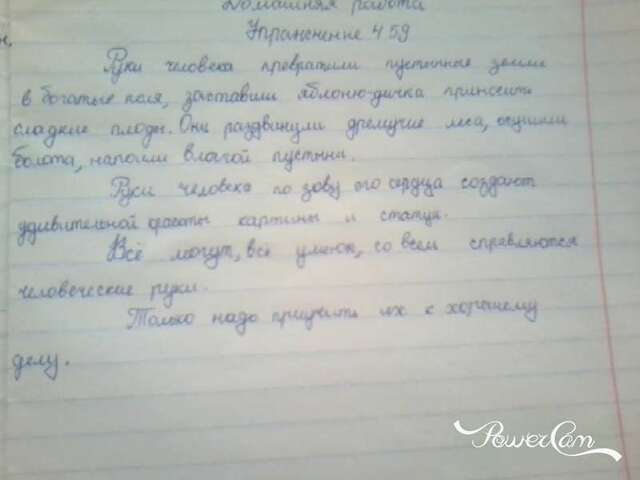 Домашняя работа
Упражнение 459
Руки человека превратили пустынные земли
в богатые поля, заставили яблоню-дичка приносить
сладкие плоды. Они раздвинули дремучие леса, осушили
болота, напоили влагой пустыни.
Руки человека по зову его сердца создают
удивительной красоты картины и статуи.
Всё могут, всё умеют, со всем справляются
человеческие руки.
Только надо приучить их к хорошему
делу.
PowerCam